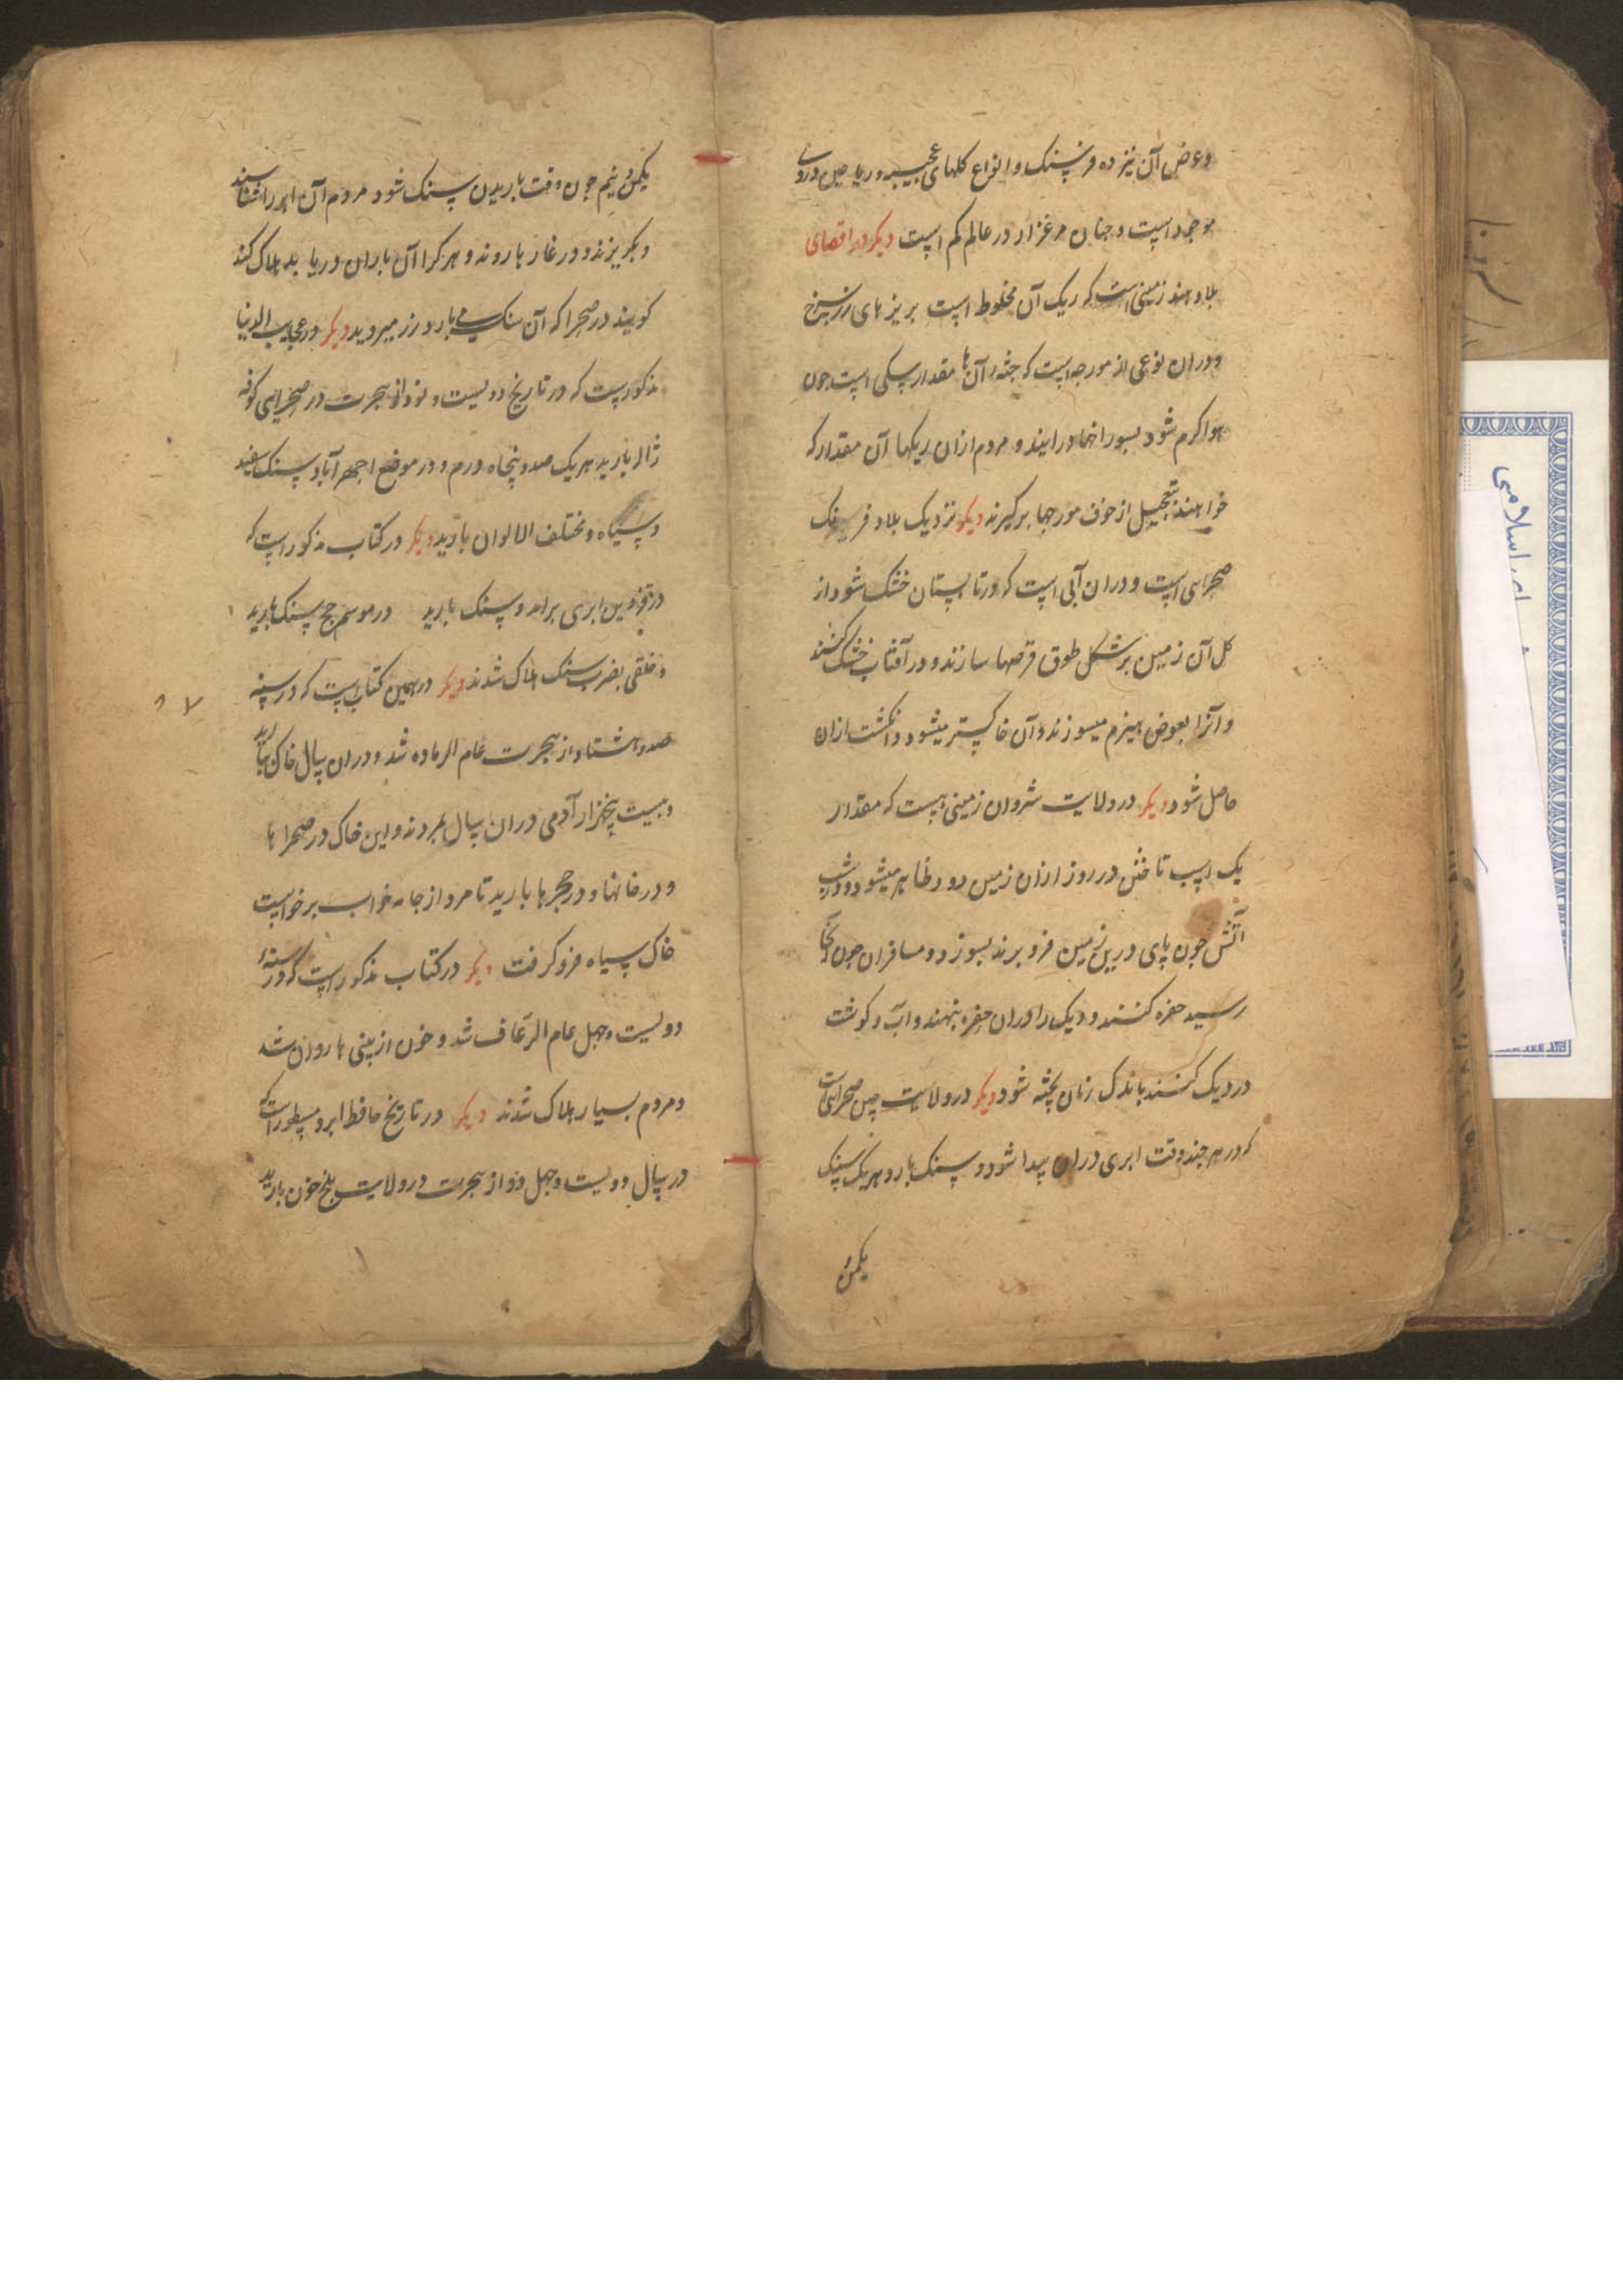 وعرض آن نیز ده فرسنک و انواع کلهای عجیبه و ریاحین درو
موجود است و چنان مرغزار در عالم کم است دیکر در اقصای
بلاد هند زمینی است که ریک آن مخلوط است بریزهای زر سرخ
و دران نوعی از مورچه است که جثه آن ها مقدار سکی است چون
هوا کرم شود بسوراخها درایند و مردم ازان ریکها آن مقدار که
خواهند بتعجیل از خوف مورچها برکیرند دیکر نزدیک بلاد فرنک
صحرایی است و دران آبی است که در تابستان خشک شود از
کل آن زمین بر شکل طوق قرصها سازند و در آفتاب خشک کنند
و آنرا بعوض هیزم میسوزند و آن خاکستر میشود و انکشت ازان
حاصل شود دیکر در ولایت شروان زمینی هست که مقدار
یک اسب تاختن در روز ازان زمین دود ظاهر میشود و در شب
آتش چون پای درین زمین فرو برند بسوزد و مسافران چون آنجا
رسند حفره کنند و دیک را دران حفره بنهند و آب و کوشت
در دیک کنند باندک زمان پخته شود دیکر در ولایت چین صحرایی است
که در هر چند وقت ابری دران پیدا شود و سنک بارد هر یک سنک
یکمن
یکمن و نیم چون وقت باریدن سنک شود مردم آن ابر را شناسند
و بکریزند و در غارها روند و هر کرا آن باران دریابد هلاک کند
کویند در صحرا که آن سنک می بارد زر میروید دیکر در عجایب الدنیا
مذکورست که در تاریخ دویست و نود از هجرت در صحرای کوفه
ژاله بارید هر یک صد و پنجاه درم و در موضع احمر آباد سنک سفید
و سیاه و مختلف الالوان بارید دیکر در کتاب مذکور است که
در قزوین ابری برامد و سنک بارید در موسم حج سنک بارید
و خلقی بضرب سنک هلاک شدند دیکر در همین کتاب است که در سنه
صد و هشتاد از هجرت عام الرماده شد و دران سال خاک بارید
و بیست پنجهزار آدمی دران سال بمردند و این خاک در صحرا ها
و در خانها و در حجرها بارید تا مرد از جامه خواب برخواست
خاک سیاه فرو کرفت دیکر در کتاب مذکور است که در سنه
دویست و چهل عام الرعاف شد و خون از بینی ها روان شد
و مردم بسیار هلاک شدند دیکر در تاریخ حافظ ابرو مسطور است که
در سال دویست و چهل و دو از هجرت در ولایت بلخ خون بارید